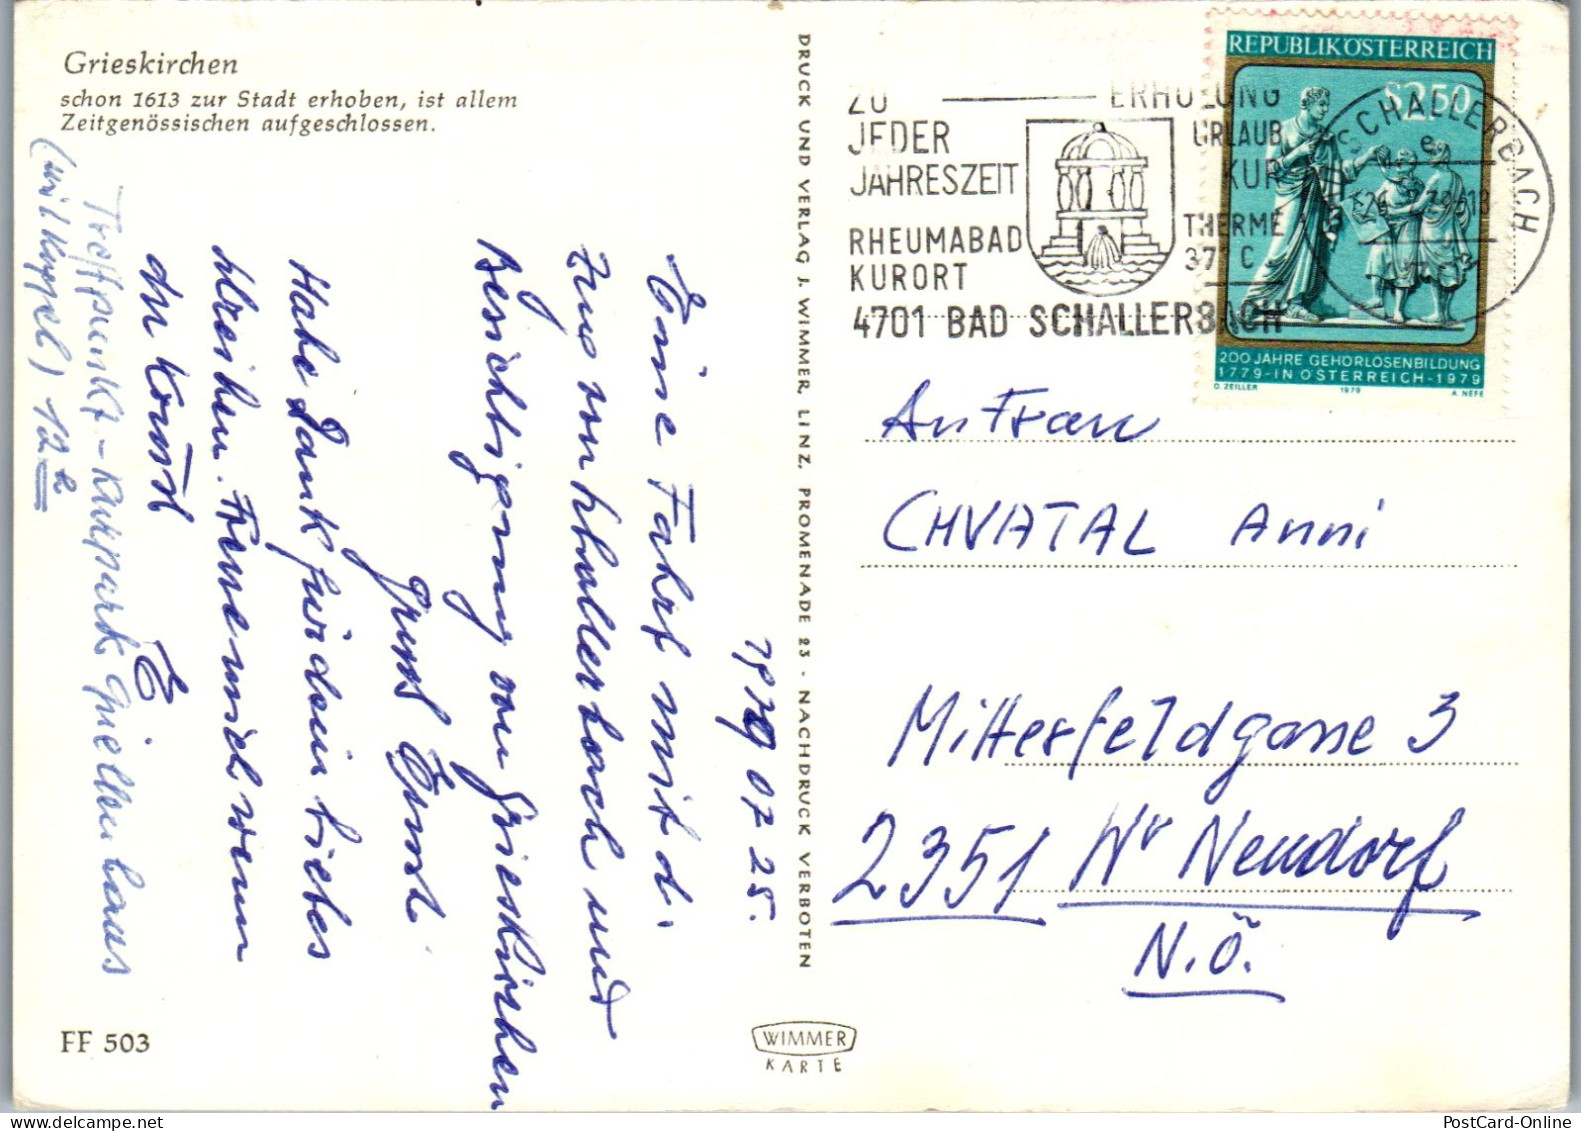 Grieskirchen
schon 1613 zur Stadt erhoben, ist allem
Zeitgenössischen aufgeschlossen.
1979 07 25.
Eine Fahrt mit d.
Zug von Schallerbach und
Besichtigung von Grieskirchen
Gruss Ernst
Habe Dank für dein liebes
Schreiben. Freue mich wenn
du kommst
E
Treffpunkt - Kurpark Quellenhaus
12 h
FF 503
DRUCK UND VERLAG J. WIMMER, LINZ, PROMENADE 23 - NACHDRUCK VERBOTEN
WIMMER
KARTE
ZU
JEDER
JAHRESZEIT
RHEUMABAD
KURORT
ERHOLUNG
URLAUB
KUR
THERME
37° C
4701 BAD SCHALLERBACH
SCHALLERBACH
REPUBLIK ÖSTERREICH
S 2.50
200 JAHRE GEHÖRLOSENBILDUNG
1779-IN ÖSTERREICH-1979
O. ZEILLER 1979 A. NEFE
An Frau
CHVATAL Anni
Mitterfeldgasse 3
2351 Wr Neudorf
N.Ö.
PostCard-Online